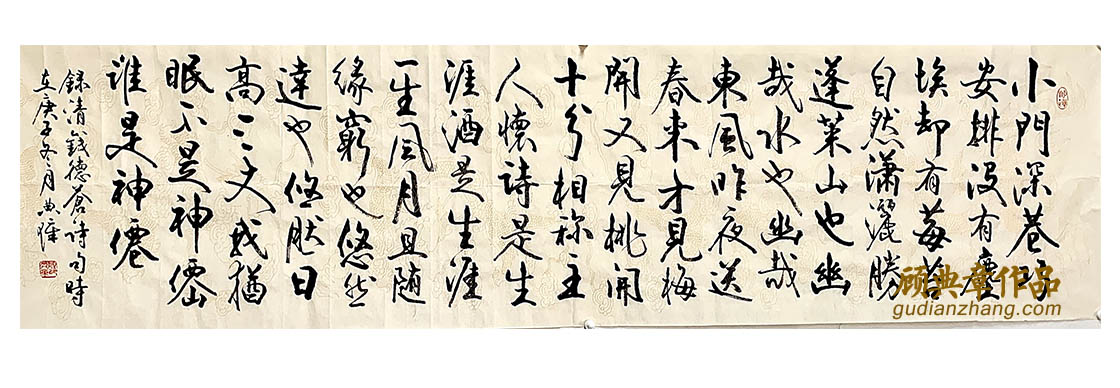 小門深巷巧
安排没有塵
埃却有莓苔
自然瀟灑勝
蓬萊山也幽
哉水也幽哉
東風昨夜送
春來才見梅
開又見桃開
十分相称主
人懷詩是生
涯酒是生涯
一生風月且随
緣窮也悠然
達也悠肰日
高三丈我猶
眠不是神仙
誰是神僊
録清錢德蒼詩句時
在庚子冬月典璋
顾典章作品
gudianzhang.com